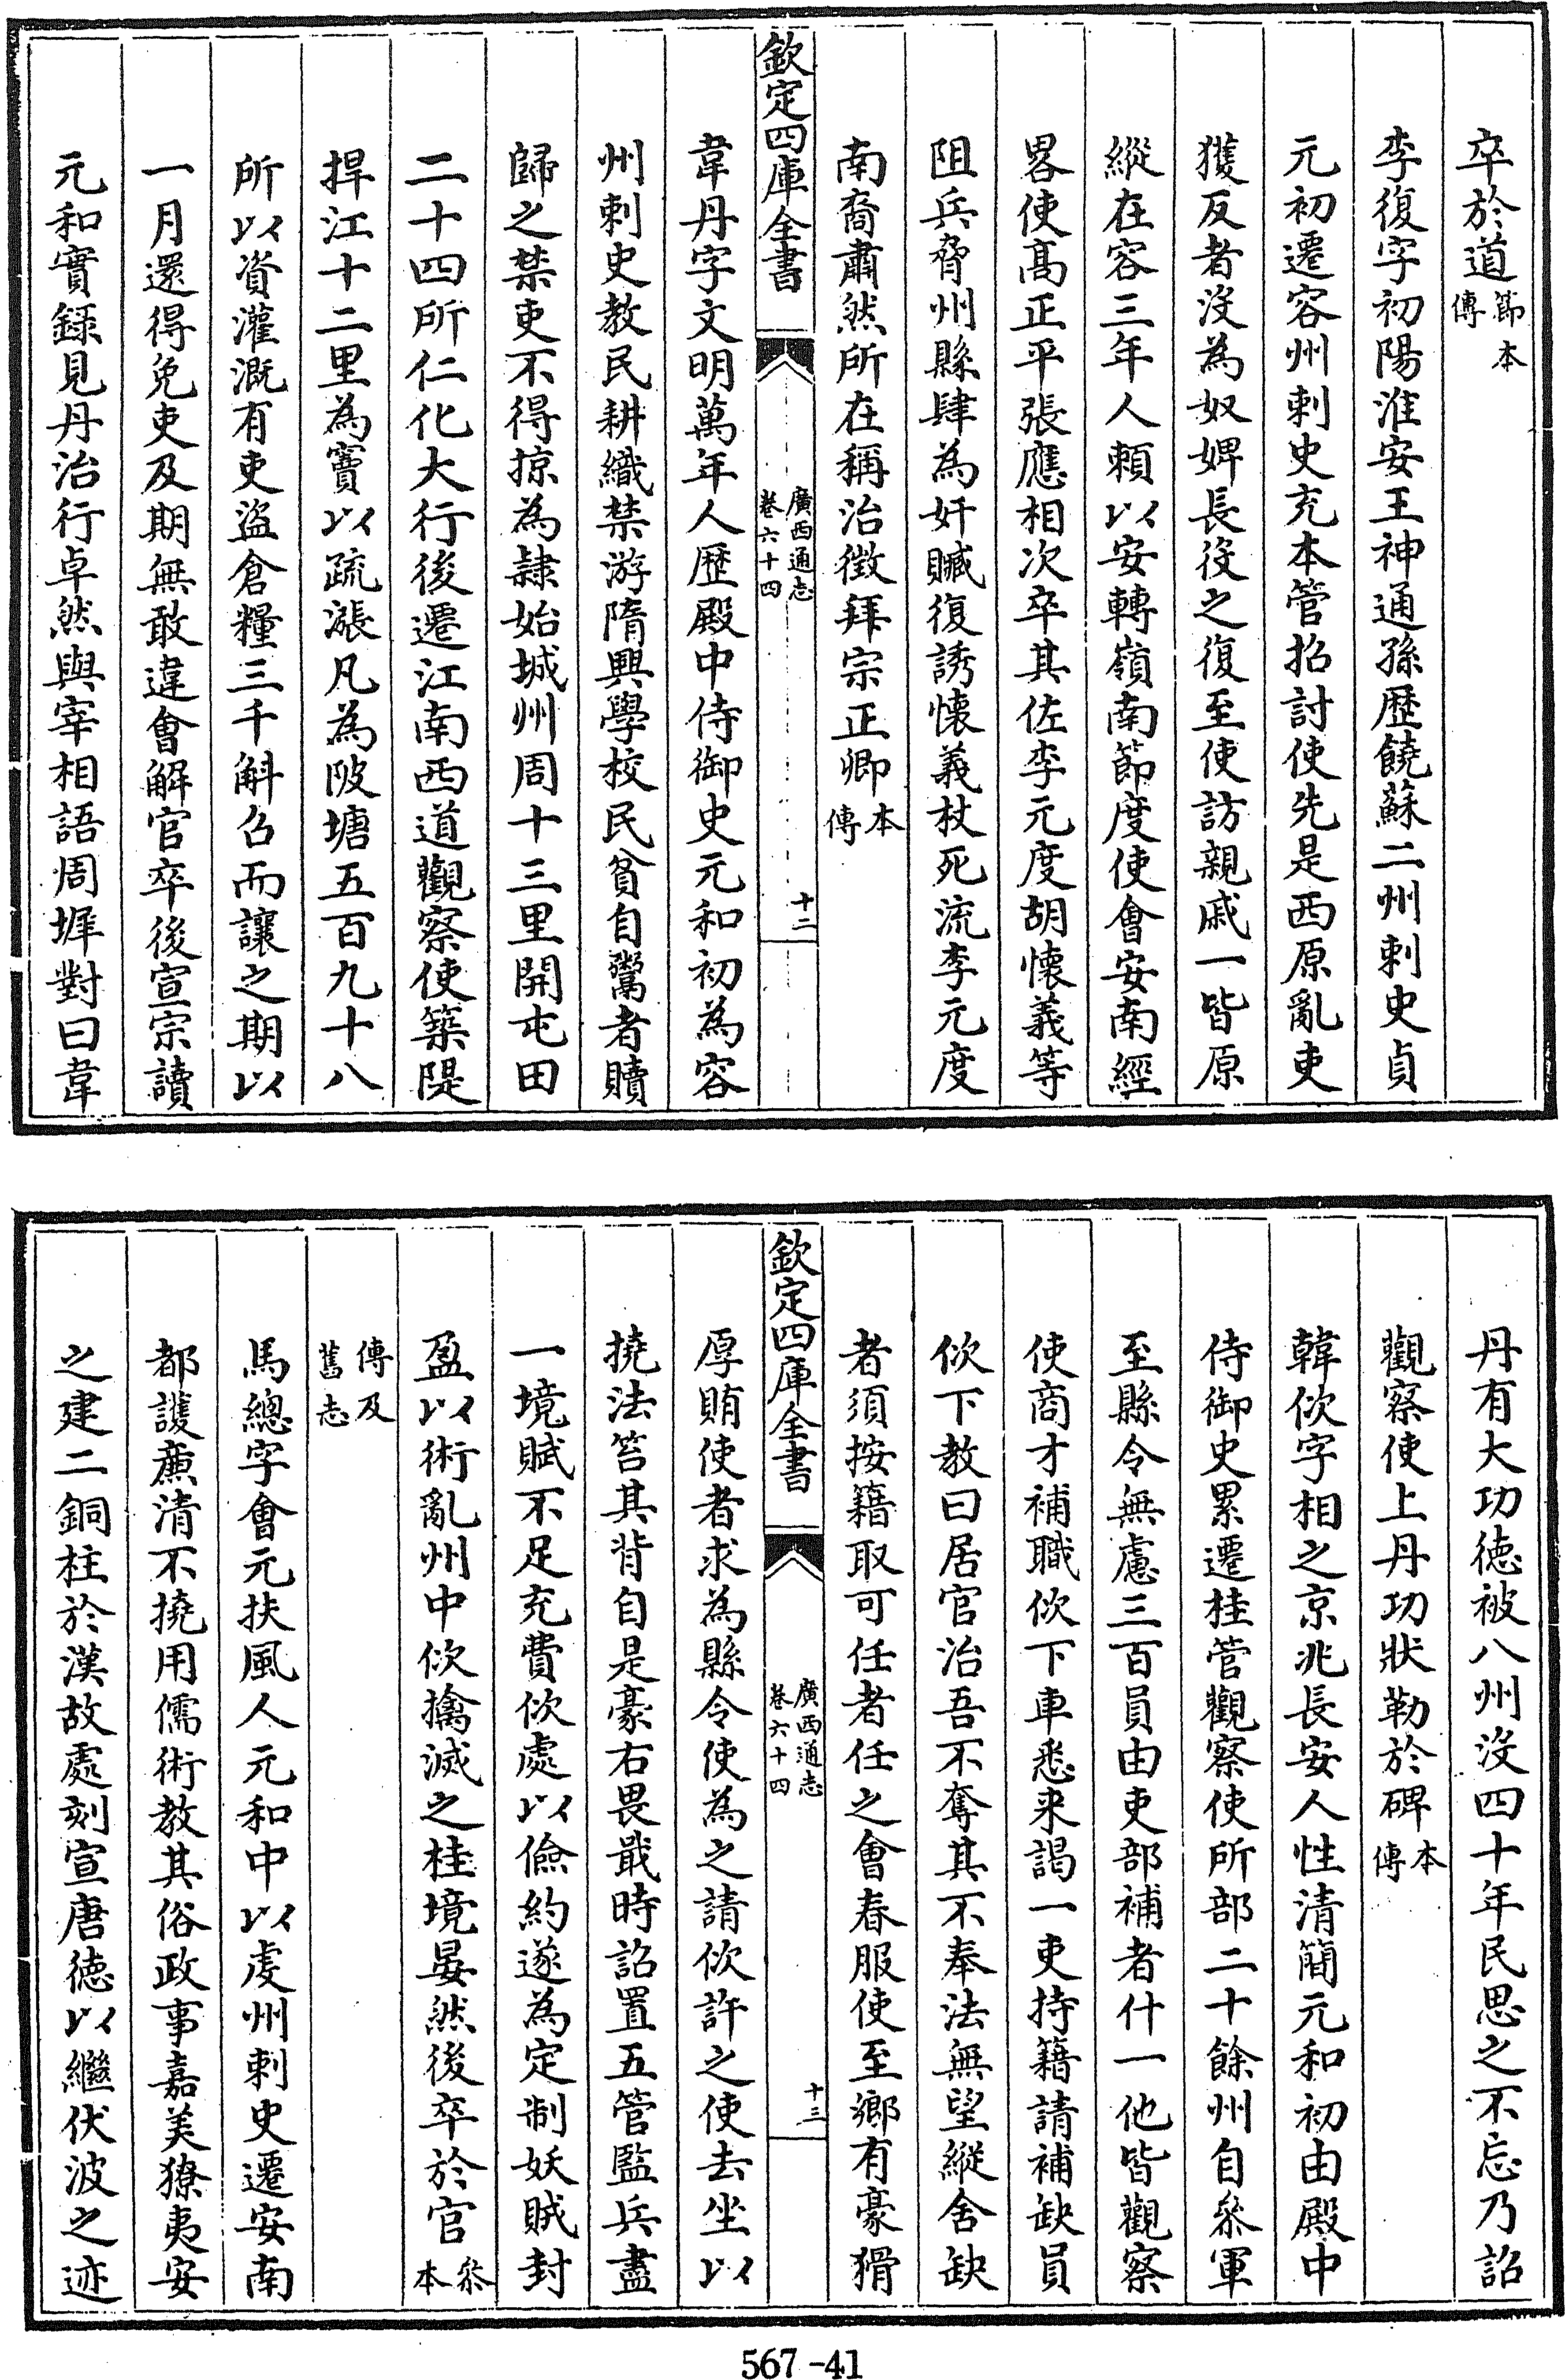 卒於道節本傳
李復字初陽淮安王神通孫歴饒蘇二州刺史貞
元初遷容州刺史充本管招討使先是西原亂吏
獲反者沒為奴婢長役之復至使訪親戚一皆原
縱在容三年人頼以安轉嶺南節度使會安南經
畧使髙正平張應相次卒其佐李元度胡懐義等
阻兵脅州縣肆為奸贓復誘懐義杖死流李元度
南裔肅然所在稱治徴拜宗正卿本傳
欽定四庫全書
廣西通志
卷六十四
十二
韋丹字文明萬年人歴殿中侍御史元和初為容
州刺史教民耕織禁游隋興學校民貧自鬻者贖
歸之禁吏不得掠為隷始城州周十三里開屯田
二十四所仁化大行後遷江南西道觀察使築隄
捍江十二里為竇以疏漲凡為陂塘五百九十八
所以資灌溉有吏盜倉糧三千斛召而讓之期以
一月還得免吏及期無敢違會解官卒後宣宗讀
元和實録見丹治行卓然與宰相語周墀對曰韋
丹有大功徳被八州沒四十年民思之不忘乃詔
觀察使上丹功狀勒於碑本傳
韓佽字相之京兆長安人性清簡元和初由殿中
侍御史累遷桂管觀察使所部二十餘州自叅軍
至縣令無慮三百員由吏部補者什一他皆觀察
使商才補職佽下車悉来謁一吏持籍請補缺員
佽下教曰居官治吾不奪其不奉法無望縱舍缺
者須按籍取可任者任之會春服使至鄉有豪猾
欽定四庫全書
廣西通志
卷六十四
十三
厚賄使者求為縣令使為之請佽許之使去坐以
撓法笞其背自是豪右畏戢時詔置五管監兵盡
一境賦不足充費佽處以儉約遂為定制妖賊封
盈以術亂州中佽擒滅之桂境晏然後卒於官叅本
傳及舊志
馬總字會元扶風人元和中以虔州刺史遷安南
都護廉清不撓用儒術教其俗政事嘉美獠夷安
之建二銅柱於漢故處刻宣唐徳以繼伏波之迹
567-41